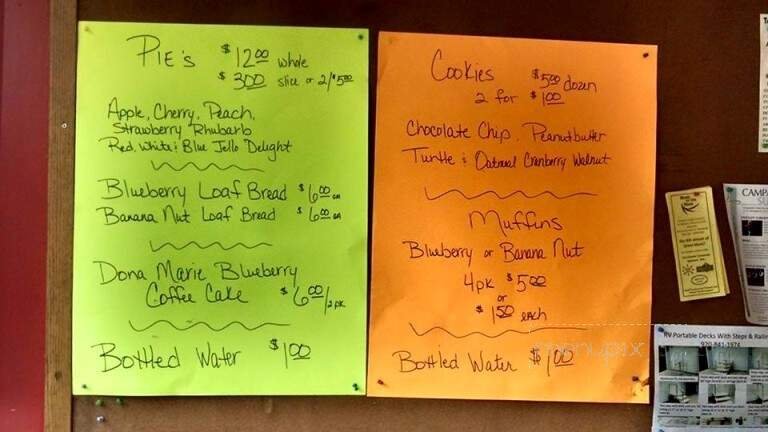 PIE's $12.00 whole
$3.00 slice or 2/$5.00
Apple, Cherry, Peach,
Strawberry Rhubarb
Red, White & Blue Jello Delight
Blueberry Loaf Bread $6.00 ea
Banana Nut Loaf Bread $6.00 ea
Dona Marie Blueberry
Coffee Cake $6.00/2pk
Bottled Water $1.00
Cookies $5.00 dozen
2 for $1.00
Chocolate Chip, Peanutbutter
Turtle & Oatmeal Cranberry Walnut
Muffins
Blueberry or Banana Nut
4pk $5.00
or
$1.50 each
Bottled Water $1.00
menupix
CAMPA
RV Portable Decks With Steps & Railin
920-841-1974